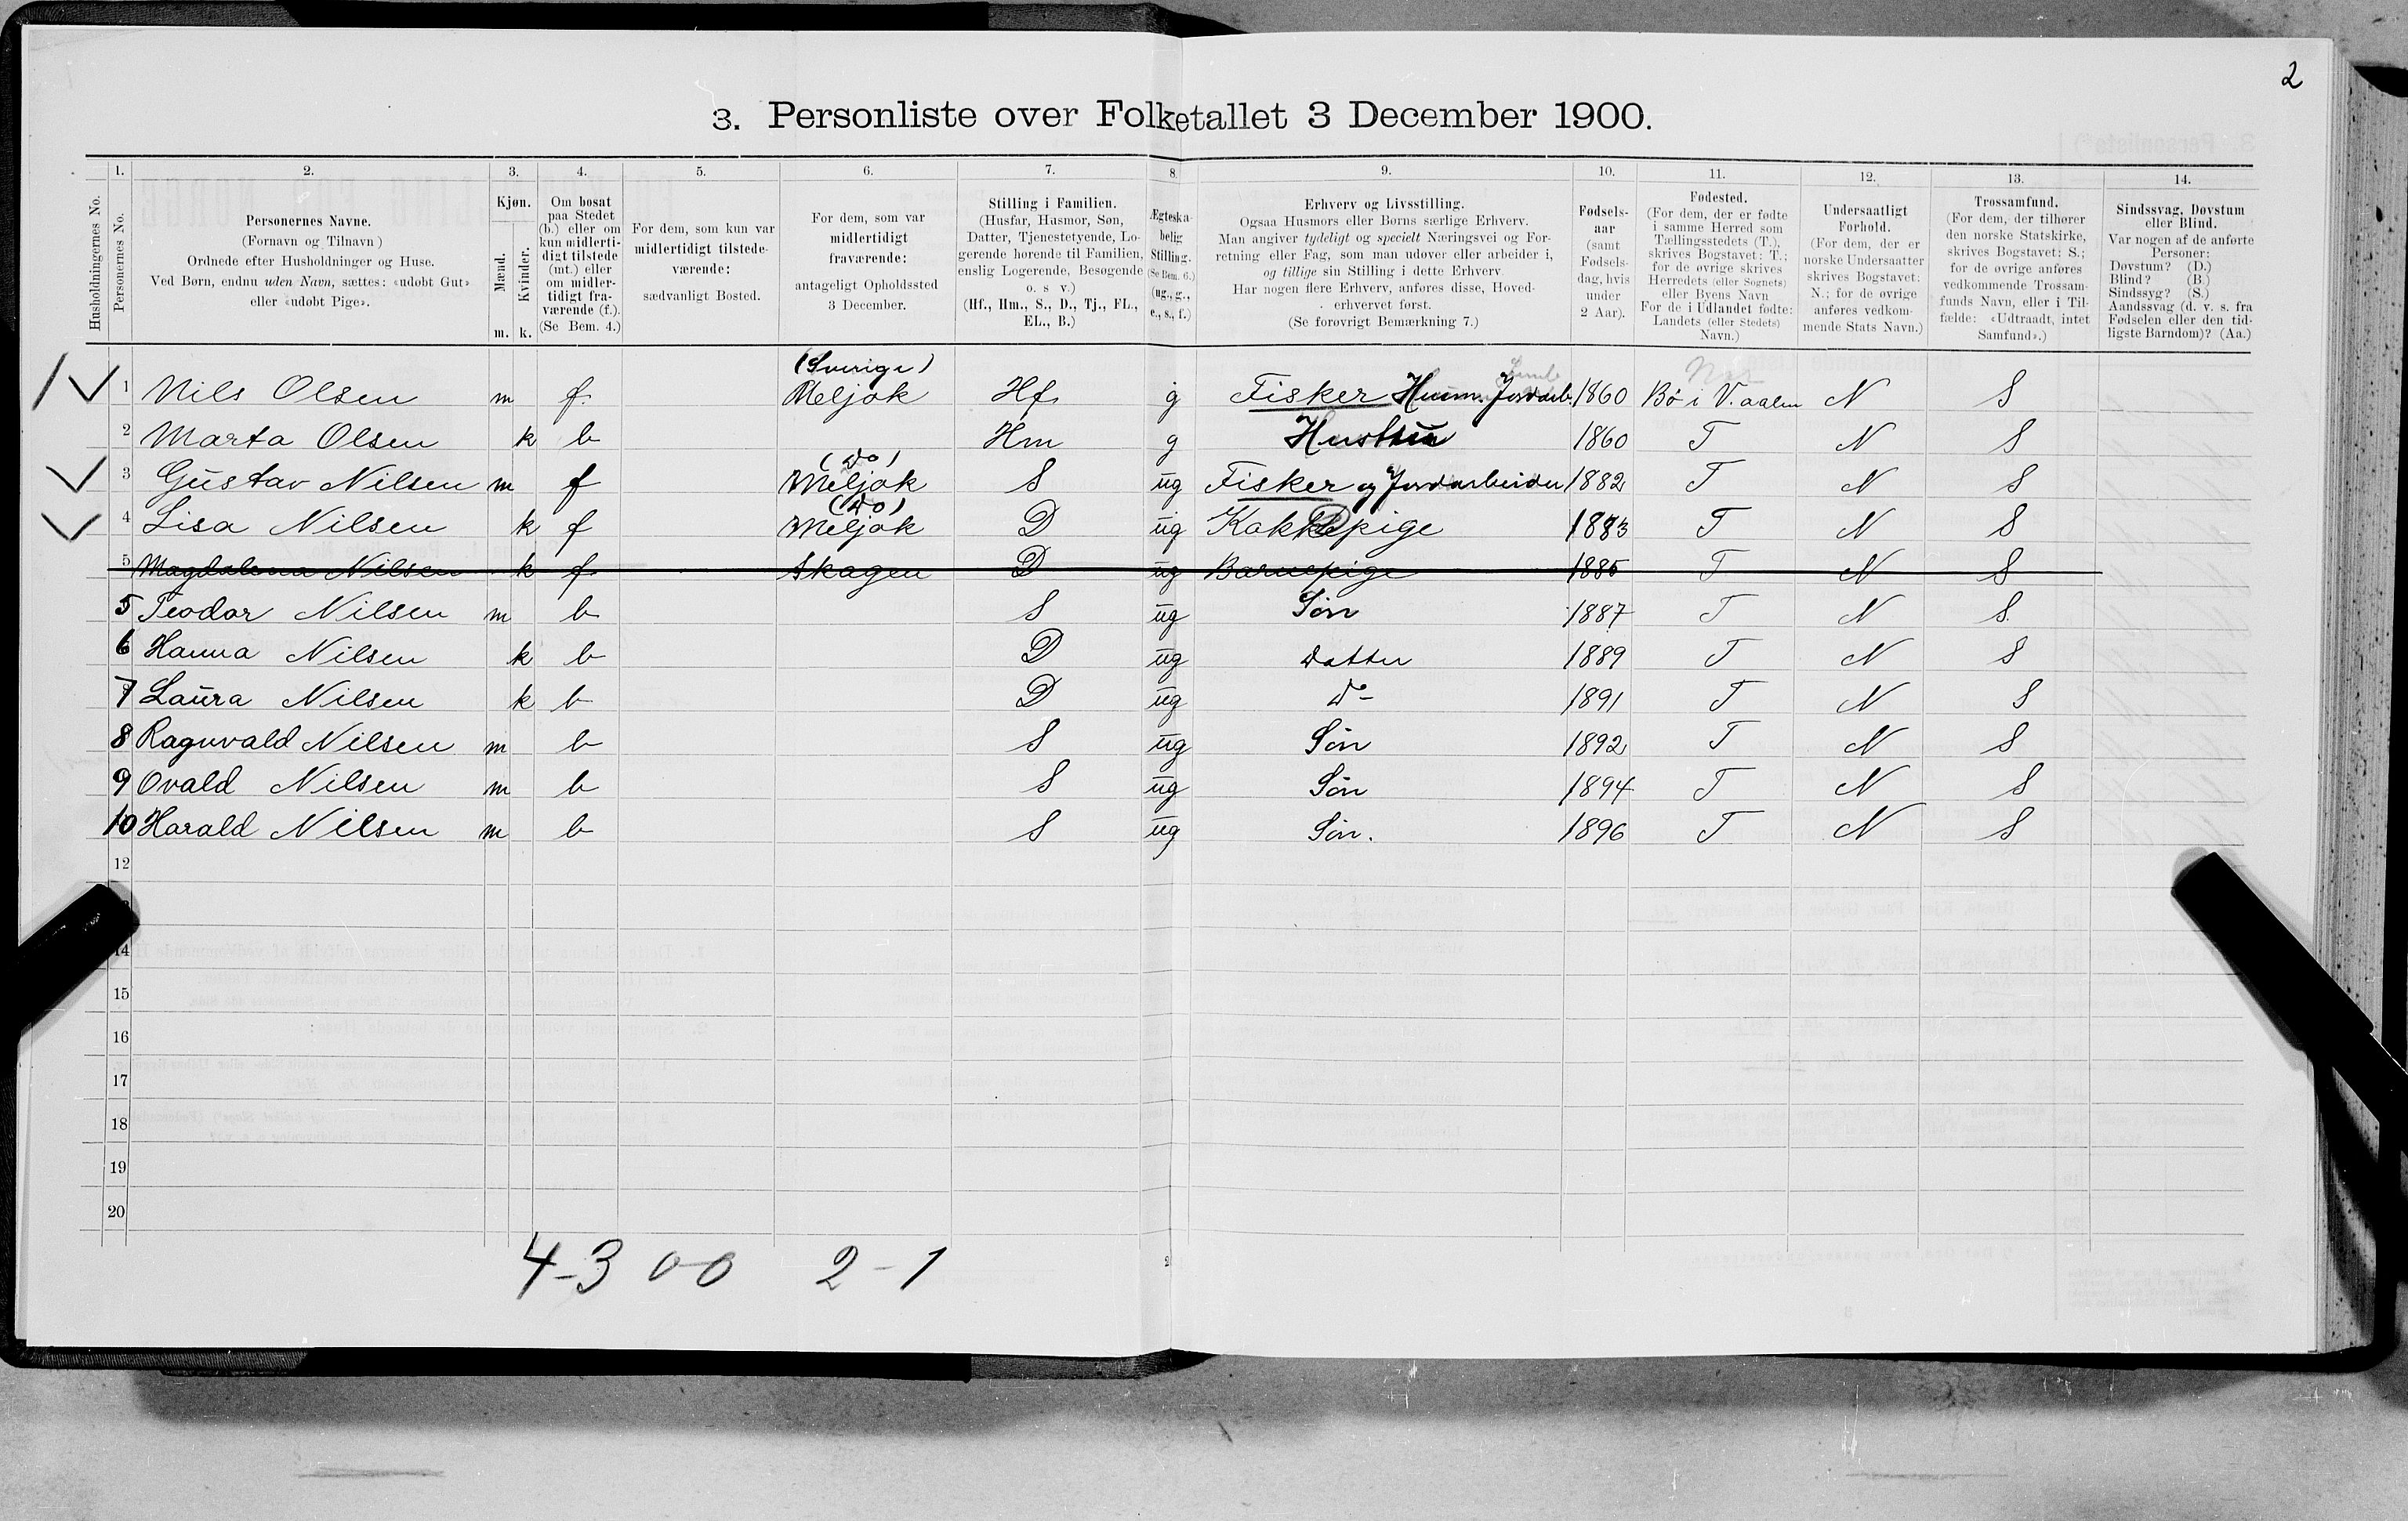 2
3. Personliste over Folketallet 3 December 1900.
1. 2. 3. 4. 5. 6. 7. 8. 9. 10. 11. 12. 13. 14.
Husholdningernes No.
Personernes No.
Personernes Navne.
(Fornavn og Tilnavn)
Ordnede efter Husholdninger og Huse.
Ved Børn, endnu uden Navn, sættes: «udøbt Gut»
eller «udøbt Pige».
Kjøn.
Mænd.
Kvinder.
m. k.
Om bosat
paa Stedet
(b.) eller om
kun midlerti-
digt tilstede
(mt.) eller
om midler-
tidigt fra-
værende (f.).
(Se Bem. 4.)
For dem, som kun var
midlertidigt tilstede-
værende:
sædvanligt Bosted.
For dem, som var
midlertidigt
fraværende:
antageligt Opholdssted
3 December.
Stilling i Familien.
(Husfar, Husmor, Søn,
Datter, Tjenestetyende, Lo-
gerende hørende til Familien,
enslig Logerende, Besøgende
o. s v.)
(Hf., Hm., S., D., Tj., FL.,
EL., B.)
Ægteska-
belig
Stilling.
(Se Bem. 6.)
(ug., g.,
e., s., f.)
Erhverv og Livsstilling.
Ogsaa Husmors eller Børns særlige Erhverv.
Man angiver tydeligt og specielt Næringsvei og For-
retning eller Fag, som man udøver eller arbeider i,
og tillige sin Stilling i dette Erhverv.
Har nogen flere Erhverv, anføres disse, Hoved-
erhvervet først.
(Se forøvrigt Bemærkning 7.)
Fødsels-
aar
(samt
Fødsels-
dag, hvis
under
2 Aar).
Fødested.
(For dem, der er fødte
i samme Herred som
Tællingsstedets (T.),
skrives Bogstavet: T.;
for de øvrige skrives
Herredets (eller Sognets)
eller Byens Navn
For de i Udlandet fødte:
Landets (eller Stedets)
Navn.)
Undersaatligt
Forhold.
(For dem, der er
norske Undersaatter
skrives Bogstavet:
N.; for de øvrige
anføres vedkom-
mende Stats Navn.)
Trossamfund.
(For dem, der tilhører
den norske Statskirke,
skrives Bogstavet: S.;
for de øvrige anføres
vedkommende Trossam-
funds Navn, eller i Til-
fælde: «Udtraadt, intet
Samfund».)
Sindssvag, Døvstum
eller Blind.
Var nogen af de anførte
Personer:
Døvstum? (D.)
Blind? (B.)
Sindssyg? (S.)
Aandssvag (d. v. s. fra
Fødselen eller den tid-
ligste Barndom)? (Aa.)
(Sverige)
1 Nils Olsen m f. Meljok Hf g Fisker Husm. Jordarb. 1860 Bø i V.aalen N S
2 Marta Olsen k b Hm g Hustru 1860 T N S
(Do)
3 Gustav Nilsen m f Meljok S ug Fisker og Jordarbeider 1882 T N S
(Do)
4 Lisa Nilsen k f Meljok D ug Kokkepige 1883 T N S
5 Magdalena Nilsen k f Skagen D ug Barnepige 1885 T N S
5 Teodor Nilsen m b S ug Søn 1887 T N S.
6 Hanna Nilsen k b D ug Datter 1889 T N S
7 Laura Nilsen k b D ug Do 1891 T N S
8 Ragnvald Nilsen m b S ug Søn 1892 T N S
9 Ovald Nilsen m b S ug Søn 1894 T N S
10 Harald Nilsen m b S ug Søn. 1896 T N S
12
14
15
16
17
18
19
20
4-3 0-0 2-1
2